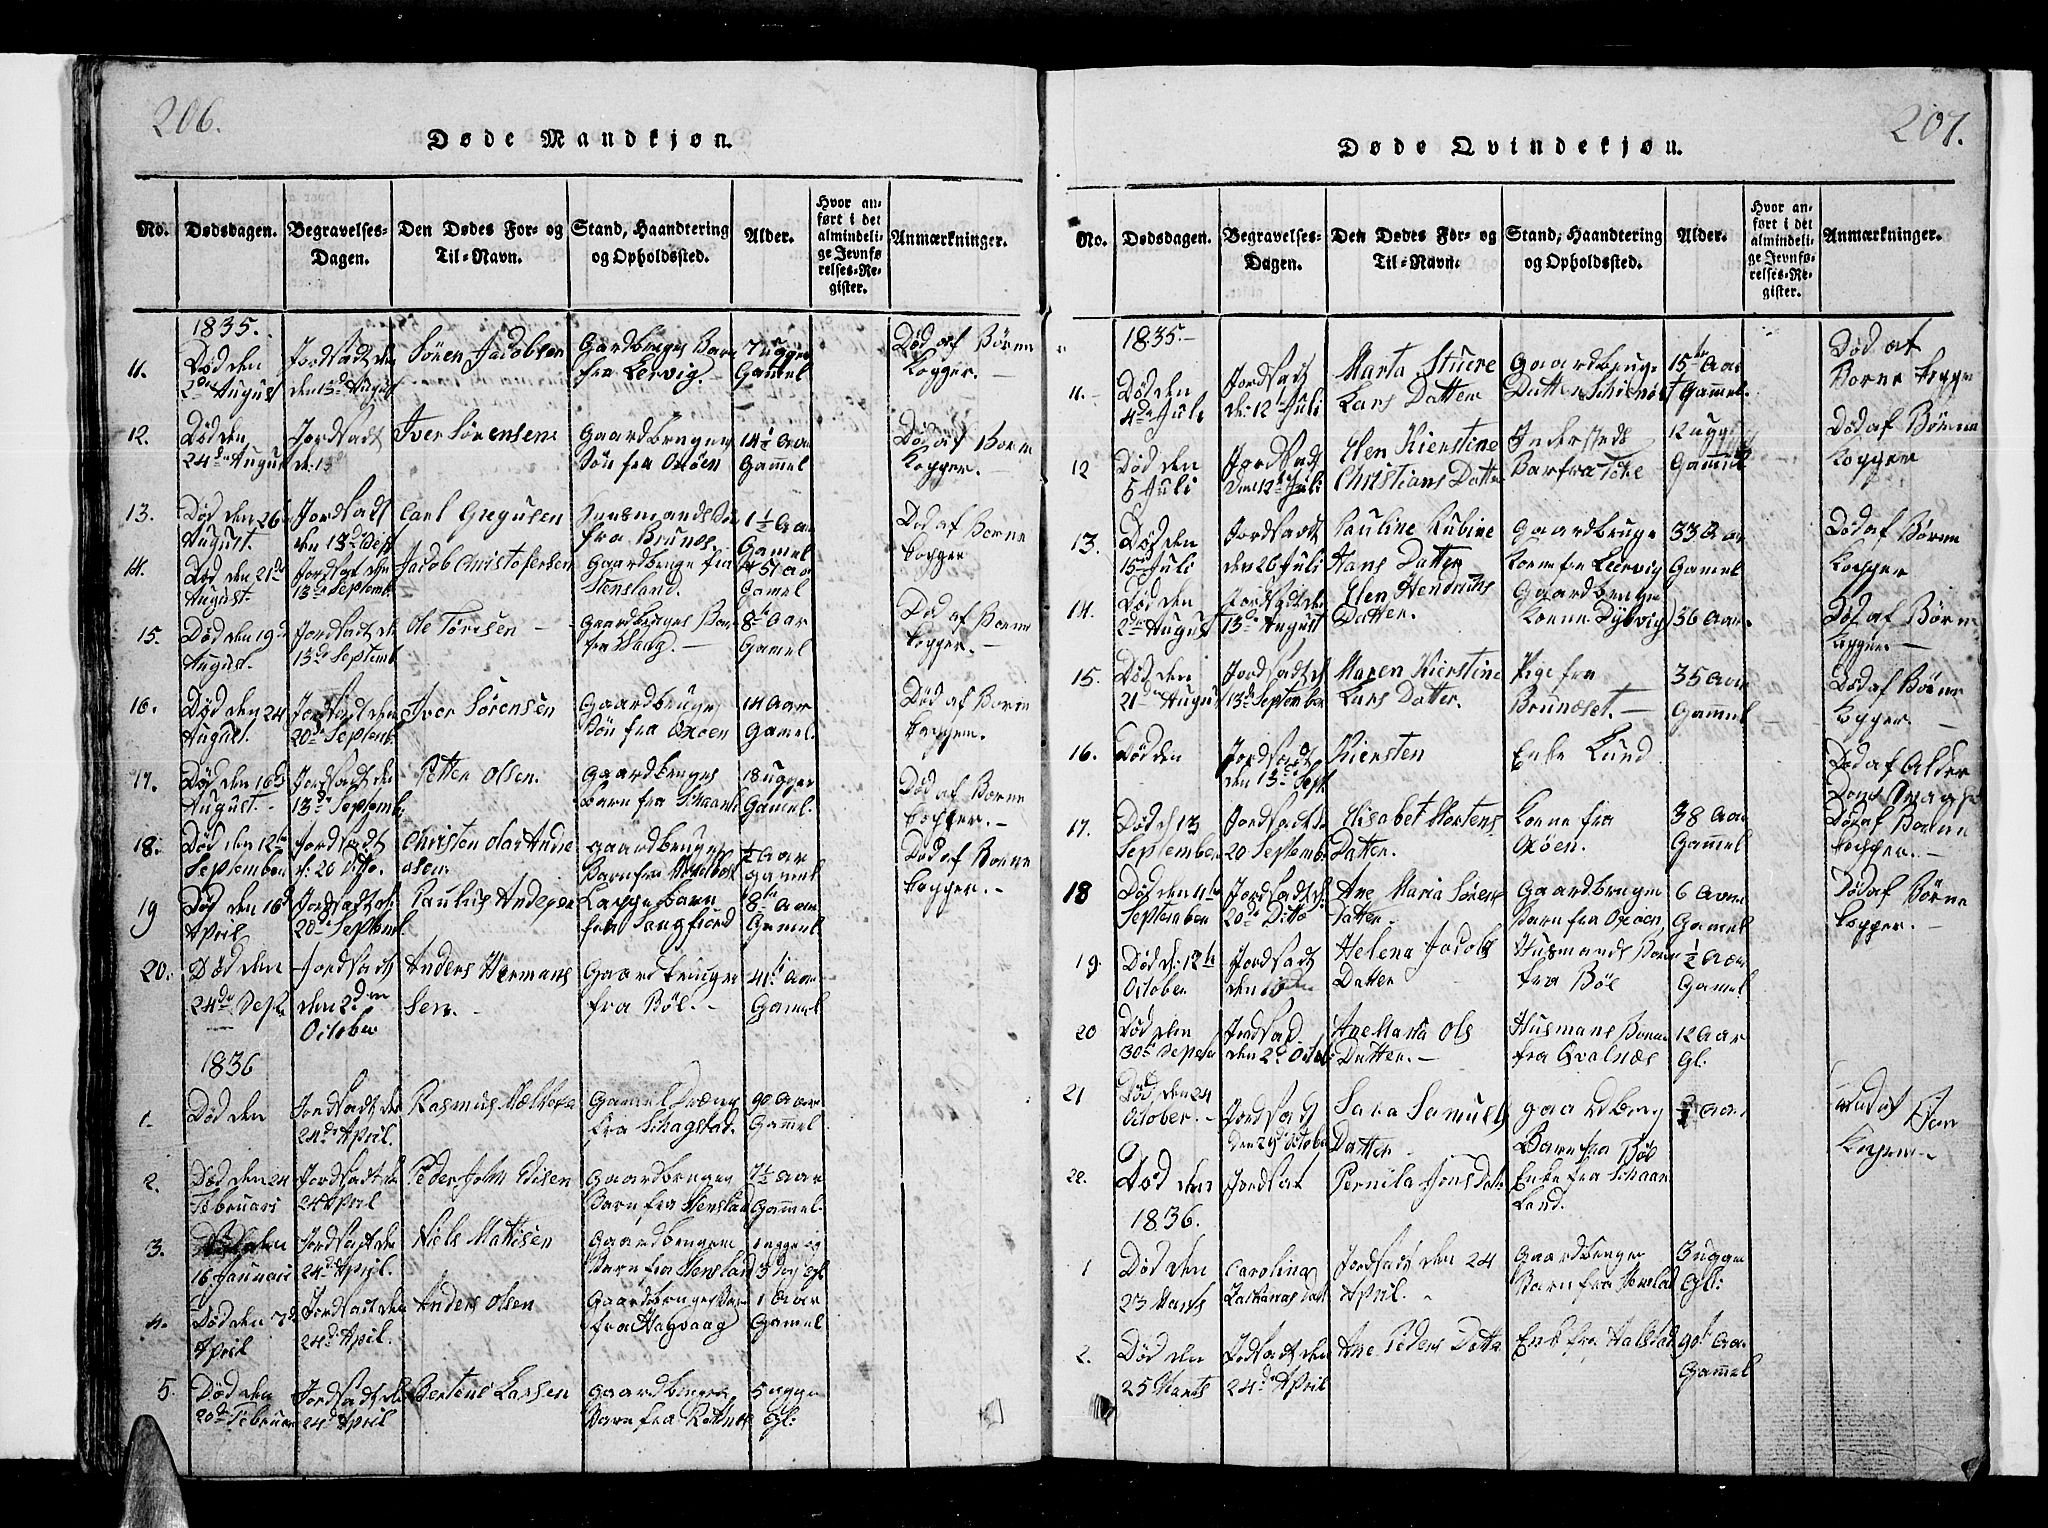 206.
Døde Mandkjøn.
No.
Dødsdagen.
Begravelses-
Dagen.
Den Dødes For- og
Til-Navn.
Stand, Haandtering
og Opholdssted.
Alder.
Hvor an-
ført i det
almindeli-
ge Jevnfø-
relses-Re-
gister.
Anmærkninger.
1835.
11.
Død den
2den August
Jordsadt den
den 13de August
Sören Jacobsen
Gaardbruges Barn
fra Lervig.
7 ugger
Gammel
Død af Börne
Kopper.
12.
Død den
24de August
Jordsadt
d. 13
Iver Sörensen
Gaardbruger
Sön fra Oxöen
14½ Aar
Gammel
Død af Borne
Kopper.
13.
Død den 26
August.
Jordsadt
den 13de Sept
Carl Gregusen
Huusmands Sön
fra Brunes.
1½ Aar
Gamel
Død af Borne
Kopper
14.
Død den 21de
August.
Jordsadt den
13de Septemb
Jacob Christofersen
Gaardbruger fra
Stensland.
51 Aar
Gamel
15.
Død den 19de
August.
Jordsadt den
13de Septemb.
Ole Torisen
Gaardbruges Barn
fra Haug.
8te Aar
Gamel
Død af Borne
Kopper.
16.
Død den 24
August.
Jordsadt den
20de Septemb.
Iver Sörensen
Gaardbruger
Sön fra Oxoen
14 Aar
Gamel.
Död af Borne
Kopper.
17.
Død den 16de
August.
Jordsadt den
13de Septemb
Petter Olsen.
Gaardbruges
Barn fra
18 ugger
Gamel.
Död af Borne
Kopper.
18.
Død den 12te
September
Jordsadt
d: 20 Ditto.
Christen
Gaardbruger
Barn fra
½ Aar
Gamel
Død af Borne
Kopper.
19
Død den 16de
April
Jordsadt d:
20de Septemb.
Paulus Andersen
Lappe Barn
fra Sagfiord
8te Aar
Gamel.
20.
Död den
24de Sept
Jordsadt
den 2den
October
Anders Hermans
Sen.
Gaardbruger
fra Böl.
41 Aar
Gamel
1836
1.
Død den
Jordsadt den
24de April.
Rasmus
Gamel Dræng
fra Schagstad.
90 Aar
Gammel
2.
Død den 24
Februari
Jordsadt den
24 April
Peder John Edisen
Gaardbruger
Barn fra Stensland
7½ Aar
Gammel.
3.
Død den
16 Januari
Jordsadt den
24de April.
Niels Mattisen
Gaardbrugern
Barn fra Stensland
1 ugge og
3 Dag gl
4.
Död den 7de
April
Jordsadt den
24de April.
Anders Olsen
Gaardbruges Barn
fra Hagvaag
1 Aar
Gamel
5.
Död den
20de Februar
Jordsadt den
24de April
Berteus Larsen
Gaardbruger
Barn fra
5 ugge
gl:
207.
Døde Qvindekjøn.
No.
Dødsdagen.
Begravelses-
Dagen.
Den Dødes For- og
Til-Navn.
Stand, Haandtering
og Opholdssted.
Alder.
Hvor an-
ført i det
almindeli-
ge Jevnfø-
relses-Re-
gister.
Anmærkninger.
1835.
11.
Död den
4de Juli
Jordsadt
d: 12 Juli
Marta Stiere
Lars Datter
Gaardbruge
Datter
15te Aar
Gammel.
Död af
Borne Kopper
12
Död den
5 Juli
Jordsadt
den 12te Juli
Elen Kierstine
Christians Datter
Indersteds
Barn fra
12 ugg
Gammel
Död af Börne
Kopper
13.
Död den
15de Juli
Jordsadt
den 26 Juli
Pauline Rubine
Hans Datter
Gaardbruge
Kone fra Leervig
33 Aar
Gamel
Död af Börne
Kopper
14.
Död den
2den August
Jordsadt den
13de August
Elen Hendriks
Datter.
Gaardbruger
Kone Dybvig
36 Aar
Död af Börne
Kopper
15.
Död den
21de August
Jordsadt d
13de September
Maren Kierstine
Lars Datter.
Pige fra
Brundset.
35 Aar
Gammel
Död af Börne
Kopper.
16.
Död den
Jordsadt
den 13de Sept.
Kiersten
Enke Lund
Död af Alder
Doms Svaghed
17.
Död d 13
September
Jordsadt d
20 Septembr
Elisabet Mortens
Datter.
Kone fra
Oxöen.
38 Aar
Gammel
Död af Borne
Kopper.
18
Död den 11te
September
Jordsadt d:
20de Ditto
Ane Maria Sörens
Datter.
Gaardbruger
Barn fra Oxoen
6 Aar
Gamel
Död af Börne
Kopper.
19.
Död d: 12te
October
Jordsadt
den 18
Helena Jacobs
Datter
Husmands Barn
fra Böl
½ Aar
Gamel
20
Död den
30te Septe
Jordsad.
den 2d Octob:
Ane Maria Ols
Datter.
Husmans Barn
fra Qvalnæs
12 Aar
Gl:
21
Död, den 24
October.
Jordsadt
den 29de October
Sara Samuels
Datter
Gaardbrug
Barn fra Böl
Aar
Kopper
22.
Död den
Jordsat
Pernila Jons Datt
Enke fra Schaan
Land.
1836.
1
Död den
23 Marts
Carolina
Zakarias Datt
Jordsadt den 24
April.
Gaardbruger
Barn fra
3 ugge
Gl:
2.
Död den
25 Marts
Jordsadt den
24de April
Ane Peders Datter
Enk fra Halstad
90 Aar
Gammel